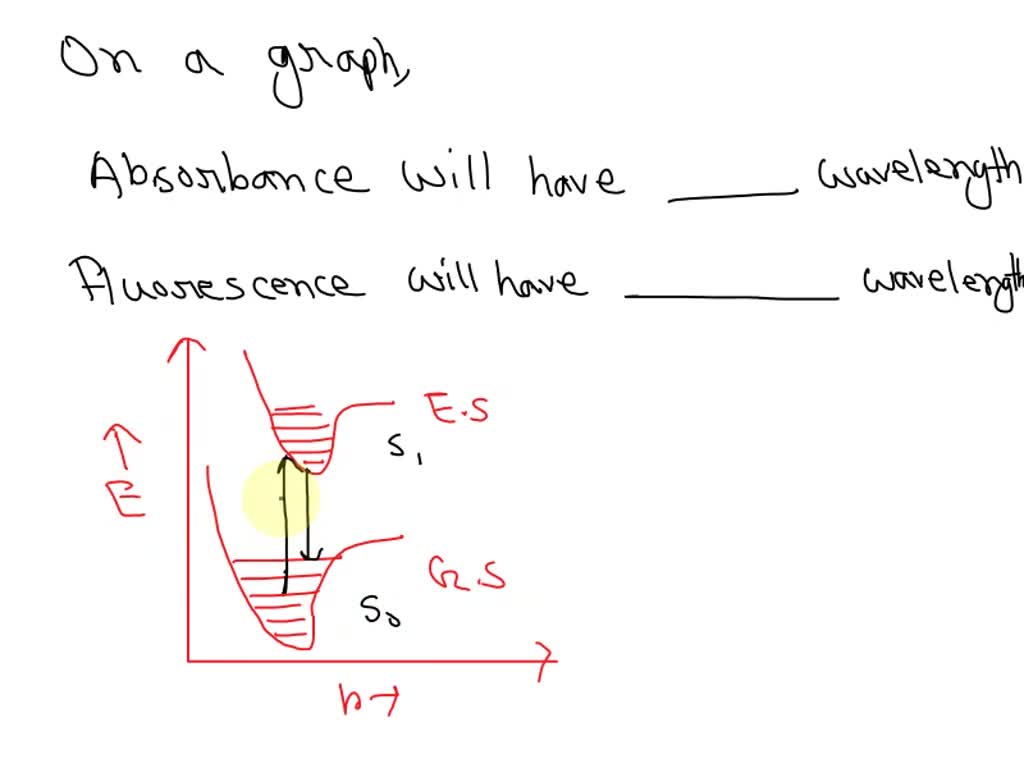 On a graph,
Absorbance will have ____ wavelength
Fluorescence will have ____ wavelength
E.S
S1
E
G.S
S0